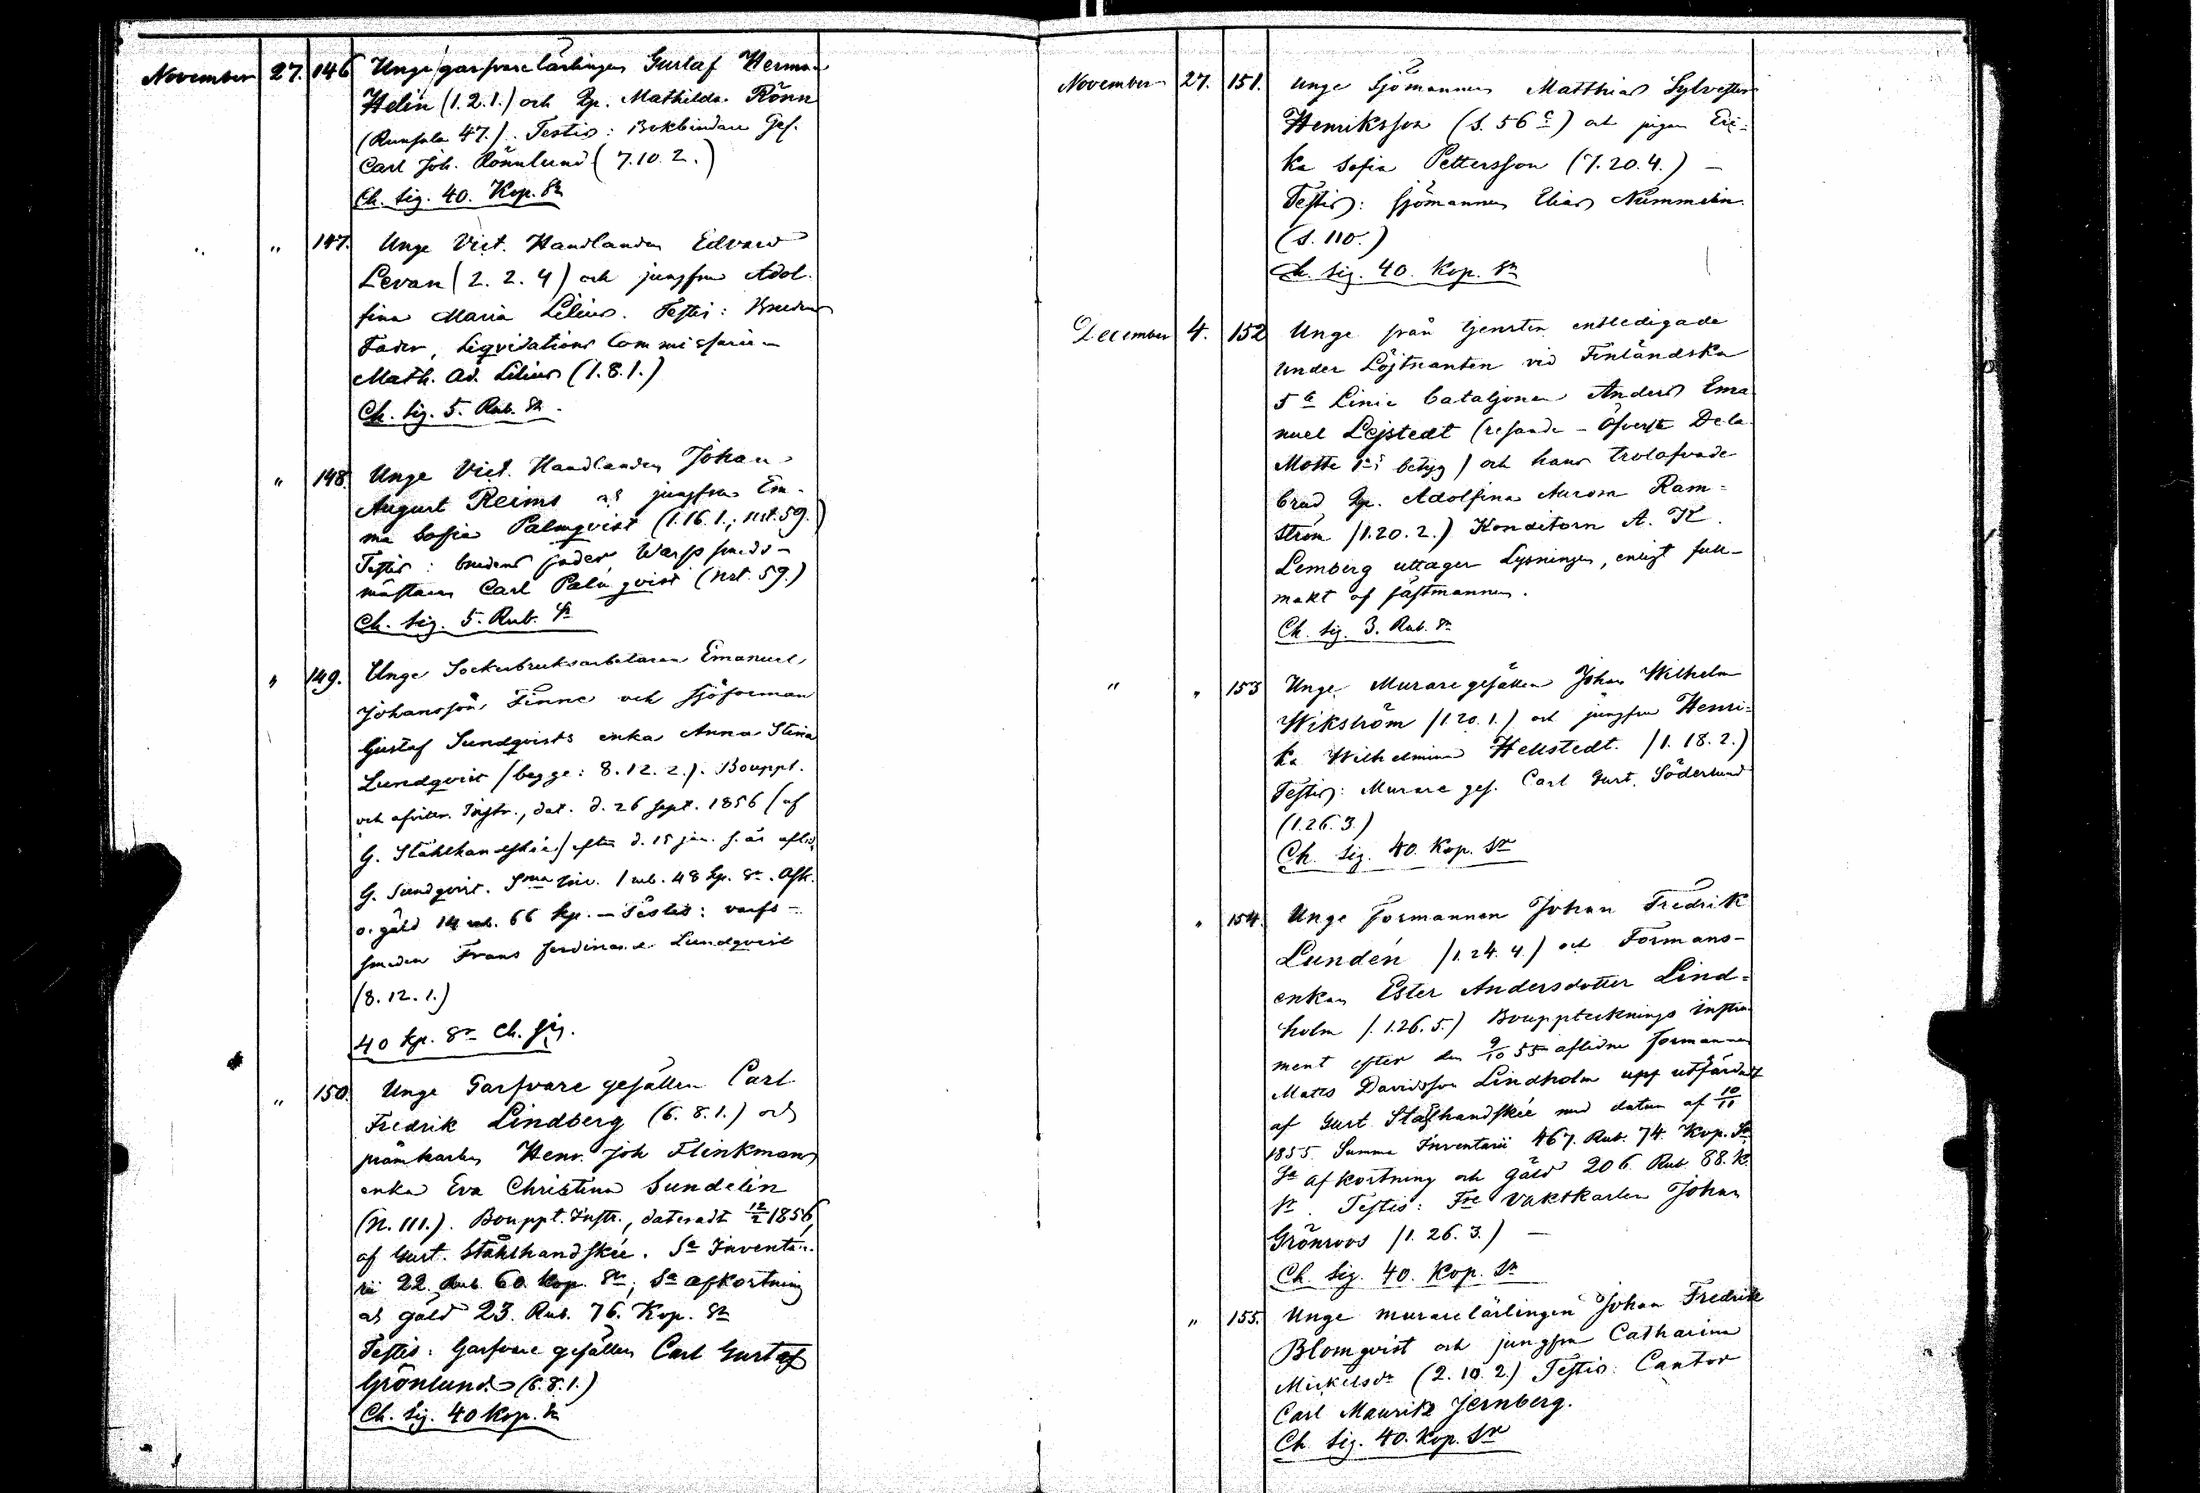 November 27. 146 Unge garfvarelärlingen Gustaf Herman
Helin (1.2.1.) och Mathilda Rönn
(Runsala 47.). Testis: Bokbindare Ges.
Carl Joh. Rönnlund (7.10.2.)
Ch. Sig. 40. Kop. Sr
" 147. Unge Vict. Handlanden Edvard
Levan (2.2.4) och jungfru Adol-
fina Maria Lilius. Testis: Brudens
Fader, Liqvidations Commissarien
Math. Ad. Lilius (1.8.1.)
Ch. Sig. 5. Rub. Sr.
" 148. Unge Vict. Handlanden Johan
August Reims och jungfru Em-
ma Sofia Palmqvist (1.16.1.; nrt. 59.)
Testis: brudens fader Warfssmeds-
mästaren Carl Palmqvist (nrt. 59.)
Ch. Sig. 5. Rub. Sr
" 149. Unge Sockerbruksarbetaren Emanuel
Johansson Finne och sjöforman
Gustaf Sundqvists enka Anna Stina
Lundqvist (begge: 8.12.2.). Bouppt.
och Instr., dat. d. 26 Sept. 1856 (af
G. Stålhandské) efter d. 15 jan. s. år aflid.
G. Sundqvist. Sma Inv. 1 rub. 48 kp. Sr. Afk.
o. gäld 14 rub. 66 kp. – Testis: varfs-
smeden Frans Ferdinand Lundqvist
(8.12.1.)
40 kp. Sr Ch. Sig.
" 150. Unge Garfvare gesällen Carl
Fredrik Lindberg (6.8.1.) och
pråmkarlen Henr. Joh Flinkmans
enka Eva Christina Sundelin
(N. 111.). Bouppt. Instr., dateradt 12/2 1856,
af Gust. Stålhandské. Sa Inventa-
rii 22. Rub. 60. Kop. Sr; Sa afkortning
och gäld 23. Rub. 76. Kop. Sr
Testis: Garfvare gesällen Carl Gustaf
Grönlund (6.8.1.)
Ch. Sig. 40 Kop. Sr
November 27. 151. Unge Sjömannen Matthias Sylvester
Henriksson (S. 56 c) och pigan Eri-
ka Sofia Pettersson (7.20.4.) –
Testis: sjömannen Elias Nummelin
(S. 110.)
Ch. Sig. 40. Kop. Sr
December 4. 152 Unge från tjensten entledigade
Under Löjtnanten vid Finländska
5te Linie bataljonen Anders Ema-
nuel Lejstedt (resande – Öfverste Dela
Motte betyg) och hans trolofvade
brud Adolfina Aurora Ram-
ström (1.20.2.) Konditorn A. K.
Lemberg uttager Lysningen, enligt full-
makt af fästmannen.
Ch. Sig. 3. Rub. Sr
" " 153 Unge Murare gesällen Johan Wilhelm
Wikström (1.20.1.) och jungfru Henri-
ka Wilhelmina Hellstedt. (1.18.2.)
Testis: Murare ges. Carl Gust. Söderlund
(1.26.3.)
Ch. Sig. 40. Kop. Sr
" 154. Unge Formannen Johan Fredrik
Lundén (1.24.4) och Formans-
enkan Ester Andersdotter Lind-
holm (1.26.5.) Bouppteknings instru-
ment efter den 9/10 55 aflidne formannen
Matts Davidsson Lindholm upp utfärdadt
af Gust. Stålhandské med datum af 10/11
1855. Summa Inventarii 467. Rub. 74. Kop. Sr
Sa afkortning och gäld 206. Rub. 88. K.
Sr. Testis: Vaktkarlen Johan
Grönroos (1.26.3.) –
Ch. Sig. 40. Kop. Sr
" 155. Unge murarelärlingen Johan Fredrik
Blomqvist och jungfru Catharina
Mickelsdr (2.10.2.) Testis: Cantor
Carl Mauritz Jernberg.
Ch. Sig. 40. Kop. Sr